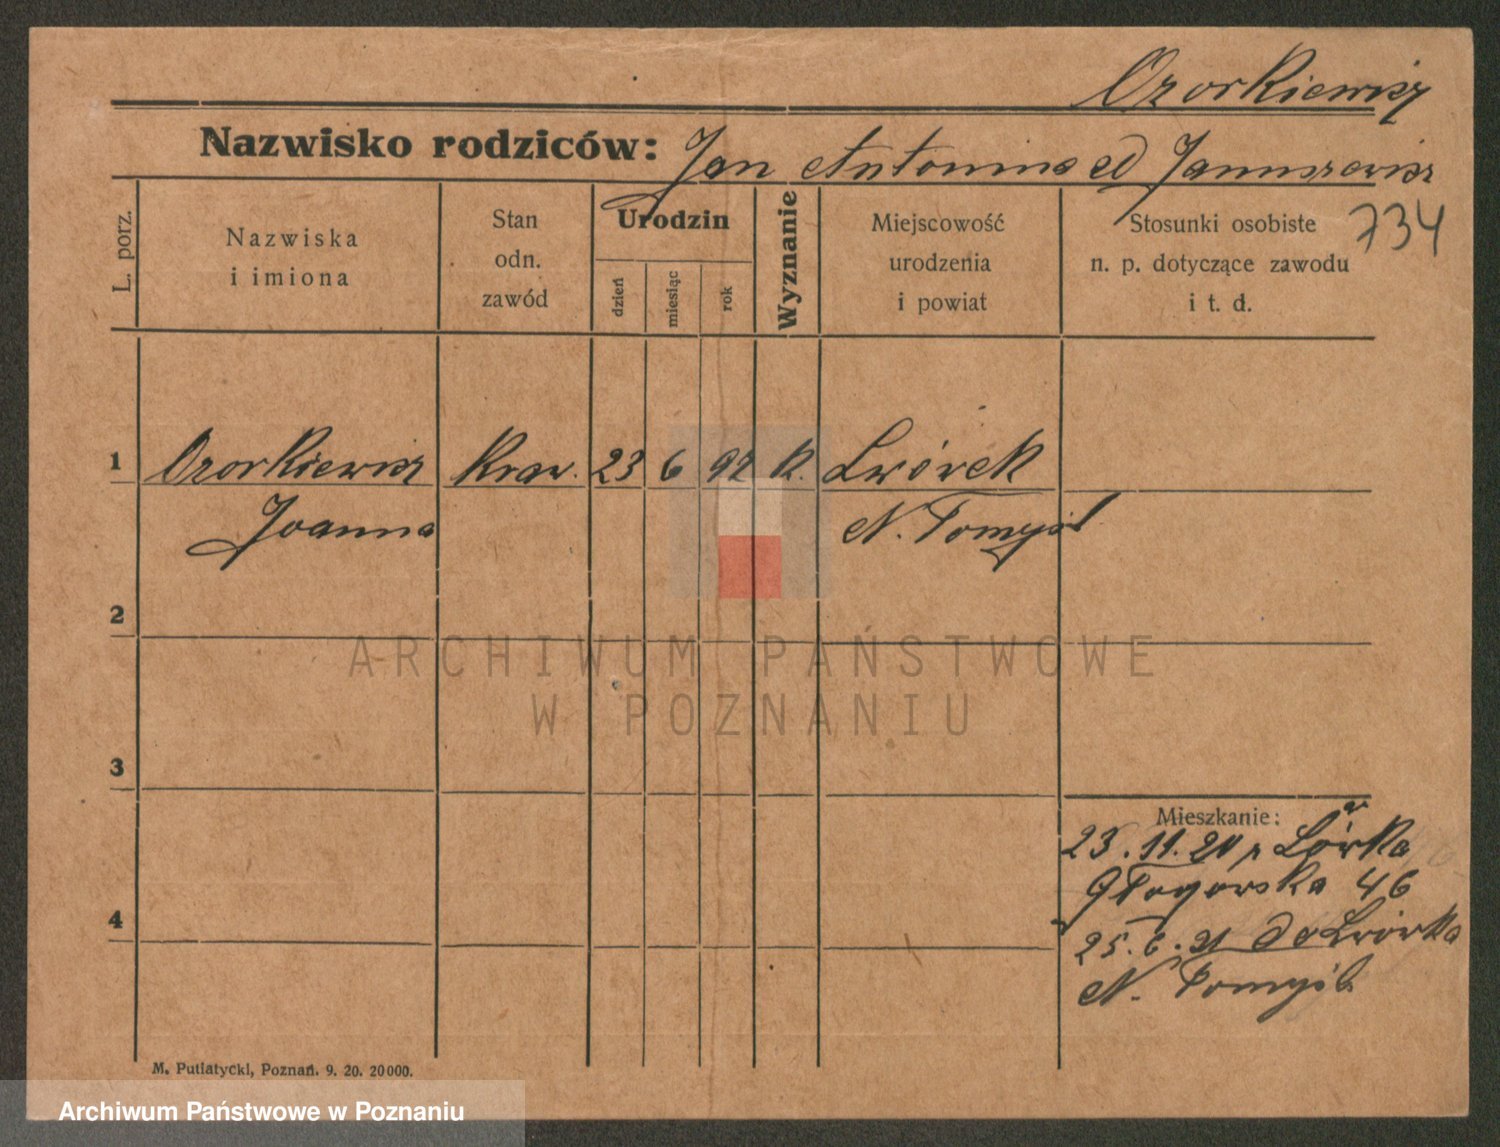 Ozorkiewicz
Nazwisko rodziców: Jan Antonina cd Januszewicz
734
L. porz.
Nazwiska
i imiona
Stan
odn.
zawód
Urodzin
dzień
miesiąc
rok
Wyznanie
Miejscowość
urodzenia
i powiat
Stosunki osobiste
n. p. dotyczące zawodu
i t. d.
1 Ozorkiewicz Kraw. 23 6 92 k. Lwówek
Joanna N. Tomyśl
2
3
4
Mieszkanie:
23.11.20 z Lówka
Głogowska 46
25.6.21 do Lwówka
N. Tomyśl.
M. Putiatycki, Poznań. 9. 20. 20000.
ARCHIWUM PAŃSTWOWE
W POZNANIU
Archiwum Państwowe w Poznaniu